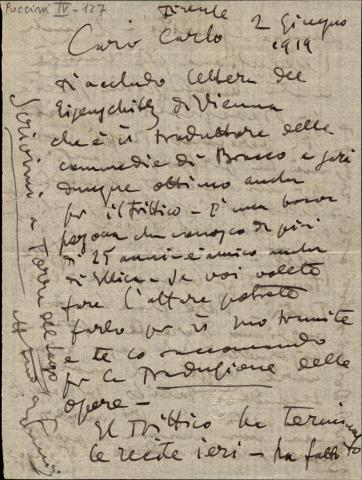 Puccini IV-127
Firenze
2 Giugno
1919
Caro Carlo
Ti accludo lettera del
Eizenschitz di Vienna
che è il traduttore delle
commedie di Bracco e sarà
dunque ottimo anche
per il trittico - È una brava
persona che conosco da più
di 25 anni e è amico anche
di Illica - Se voi volete
fare l'affare potrete
farlo per il suo tramite
e te lo raccomando
per la Traduzione delle
opere -
El Trittico ha terminato
le recite ieri - ha fatto
Scrivimi a Torre del Lago